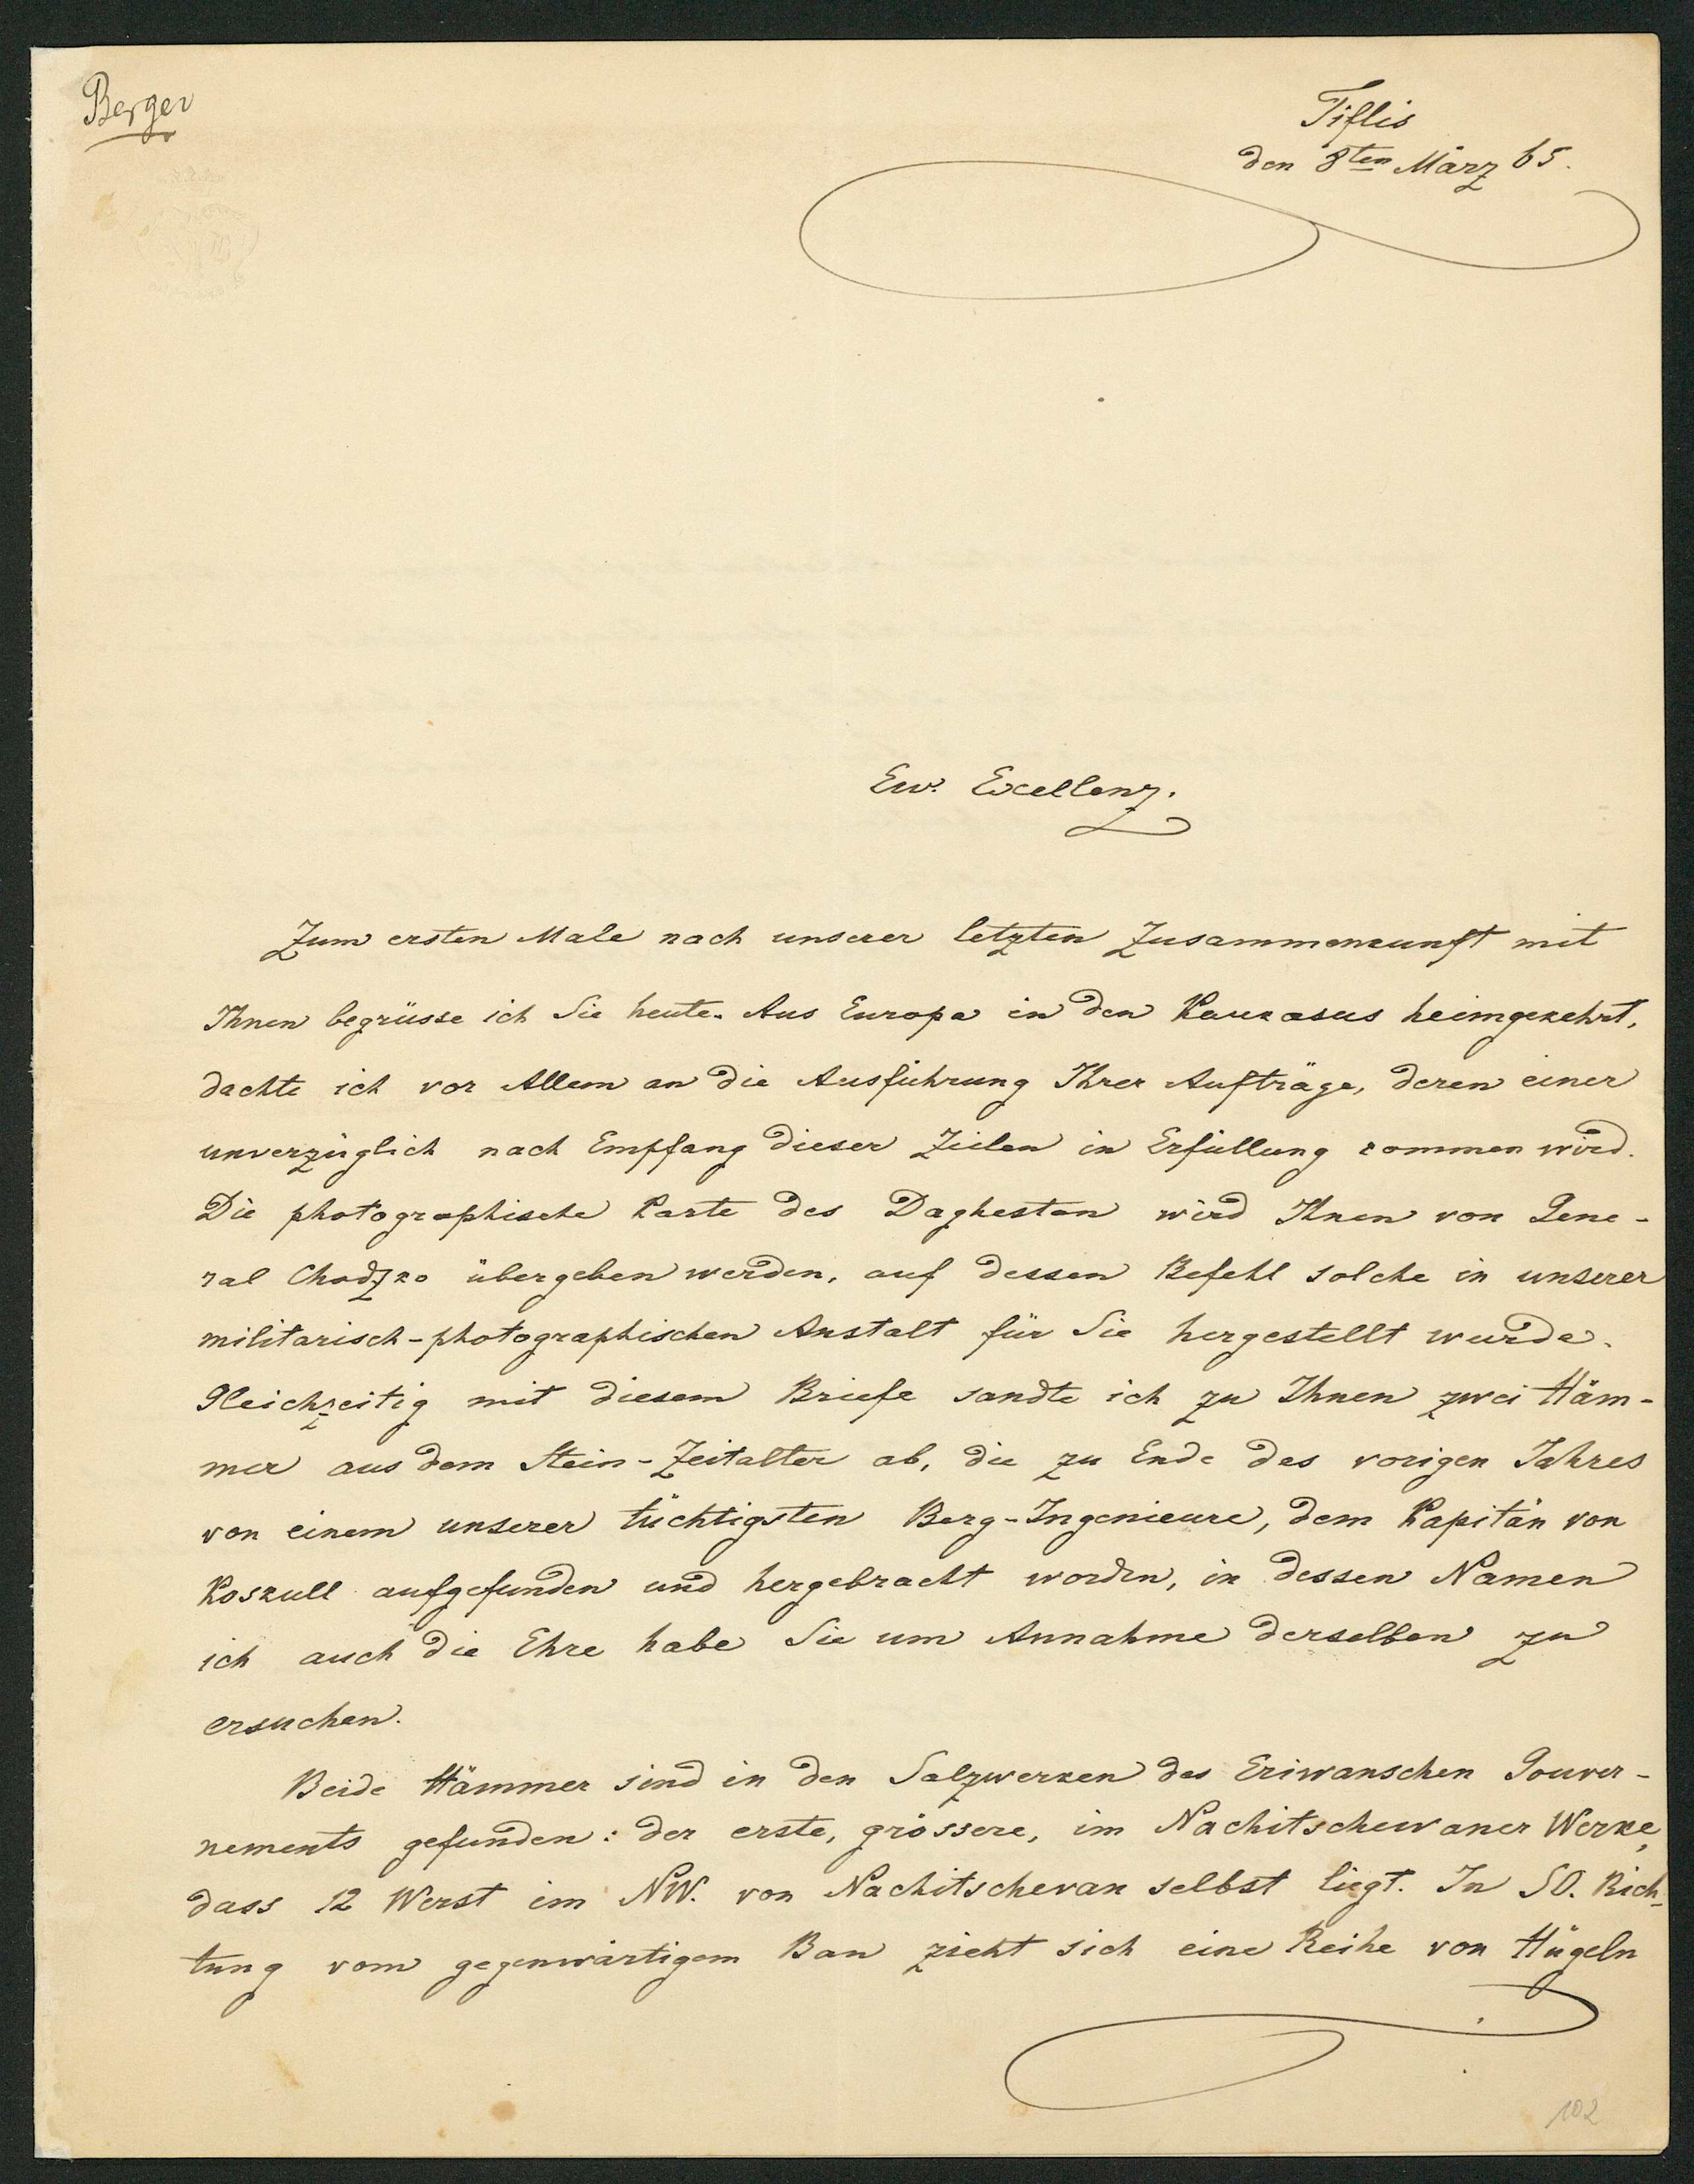 Berger
Tiflis
den 8ten März 65.
Ew. Excellenz.
Zum ersten Male nach unserer letzten Zusammenkunft mit
Ihnen begrüsse ich Sie heute. Aus Europa in den Kaukasus heimgekehrt,
dachte ich vor Allem an die Ausführung Ihrer Aufträge, deren einer
unverzüglich nach Empfang dieser Zeilen in Erfüllung kommen wird.
Die photographische Karte des Daghestan wird Ihnen von Gene-
ral Chodzko übergeben werden, auf dessen Befehl solche in unserer
militarisch-photographischen Anstalt für Sie hergestellt wurde.
Gleichzeitig mit diesem Briefe sandte ich zu Ihnen zwei Häm-
mer aus dem Stein-Zeitalter ab, die zu Ende des vorigen Jahres
von einem unserer tüchtigsten Berg-Ingenieure, dem Kapitän von
Koszull aufgefunden und hergebracht worden, in dessen Namen
ich auch die Ehre habe Sie um Annahme derselben zu
ersuchen.
Beide Hämmer sind in den Salzwerken des Eriwanschen Gouver-
nements gefunden: der erste, grössere, im Nachitschewaner Werke,
dass 12 Werst im NW. von Nachitschevan selbst liegt. In SO. Rich-
tung vom gegenwärtigem Bau zieht sich eine Reihe von Hügeln
102